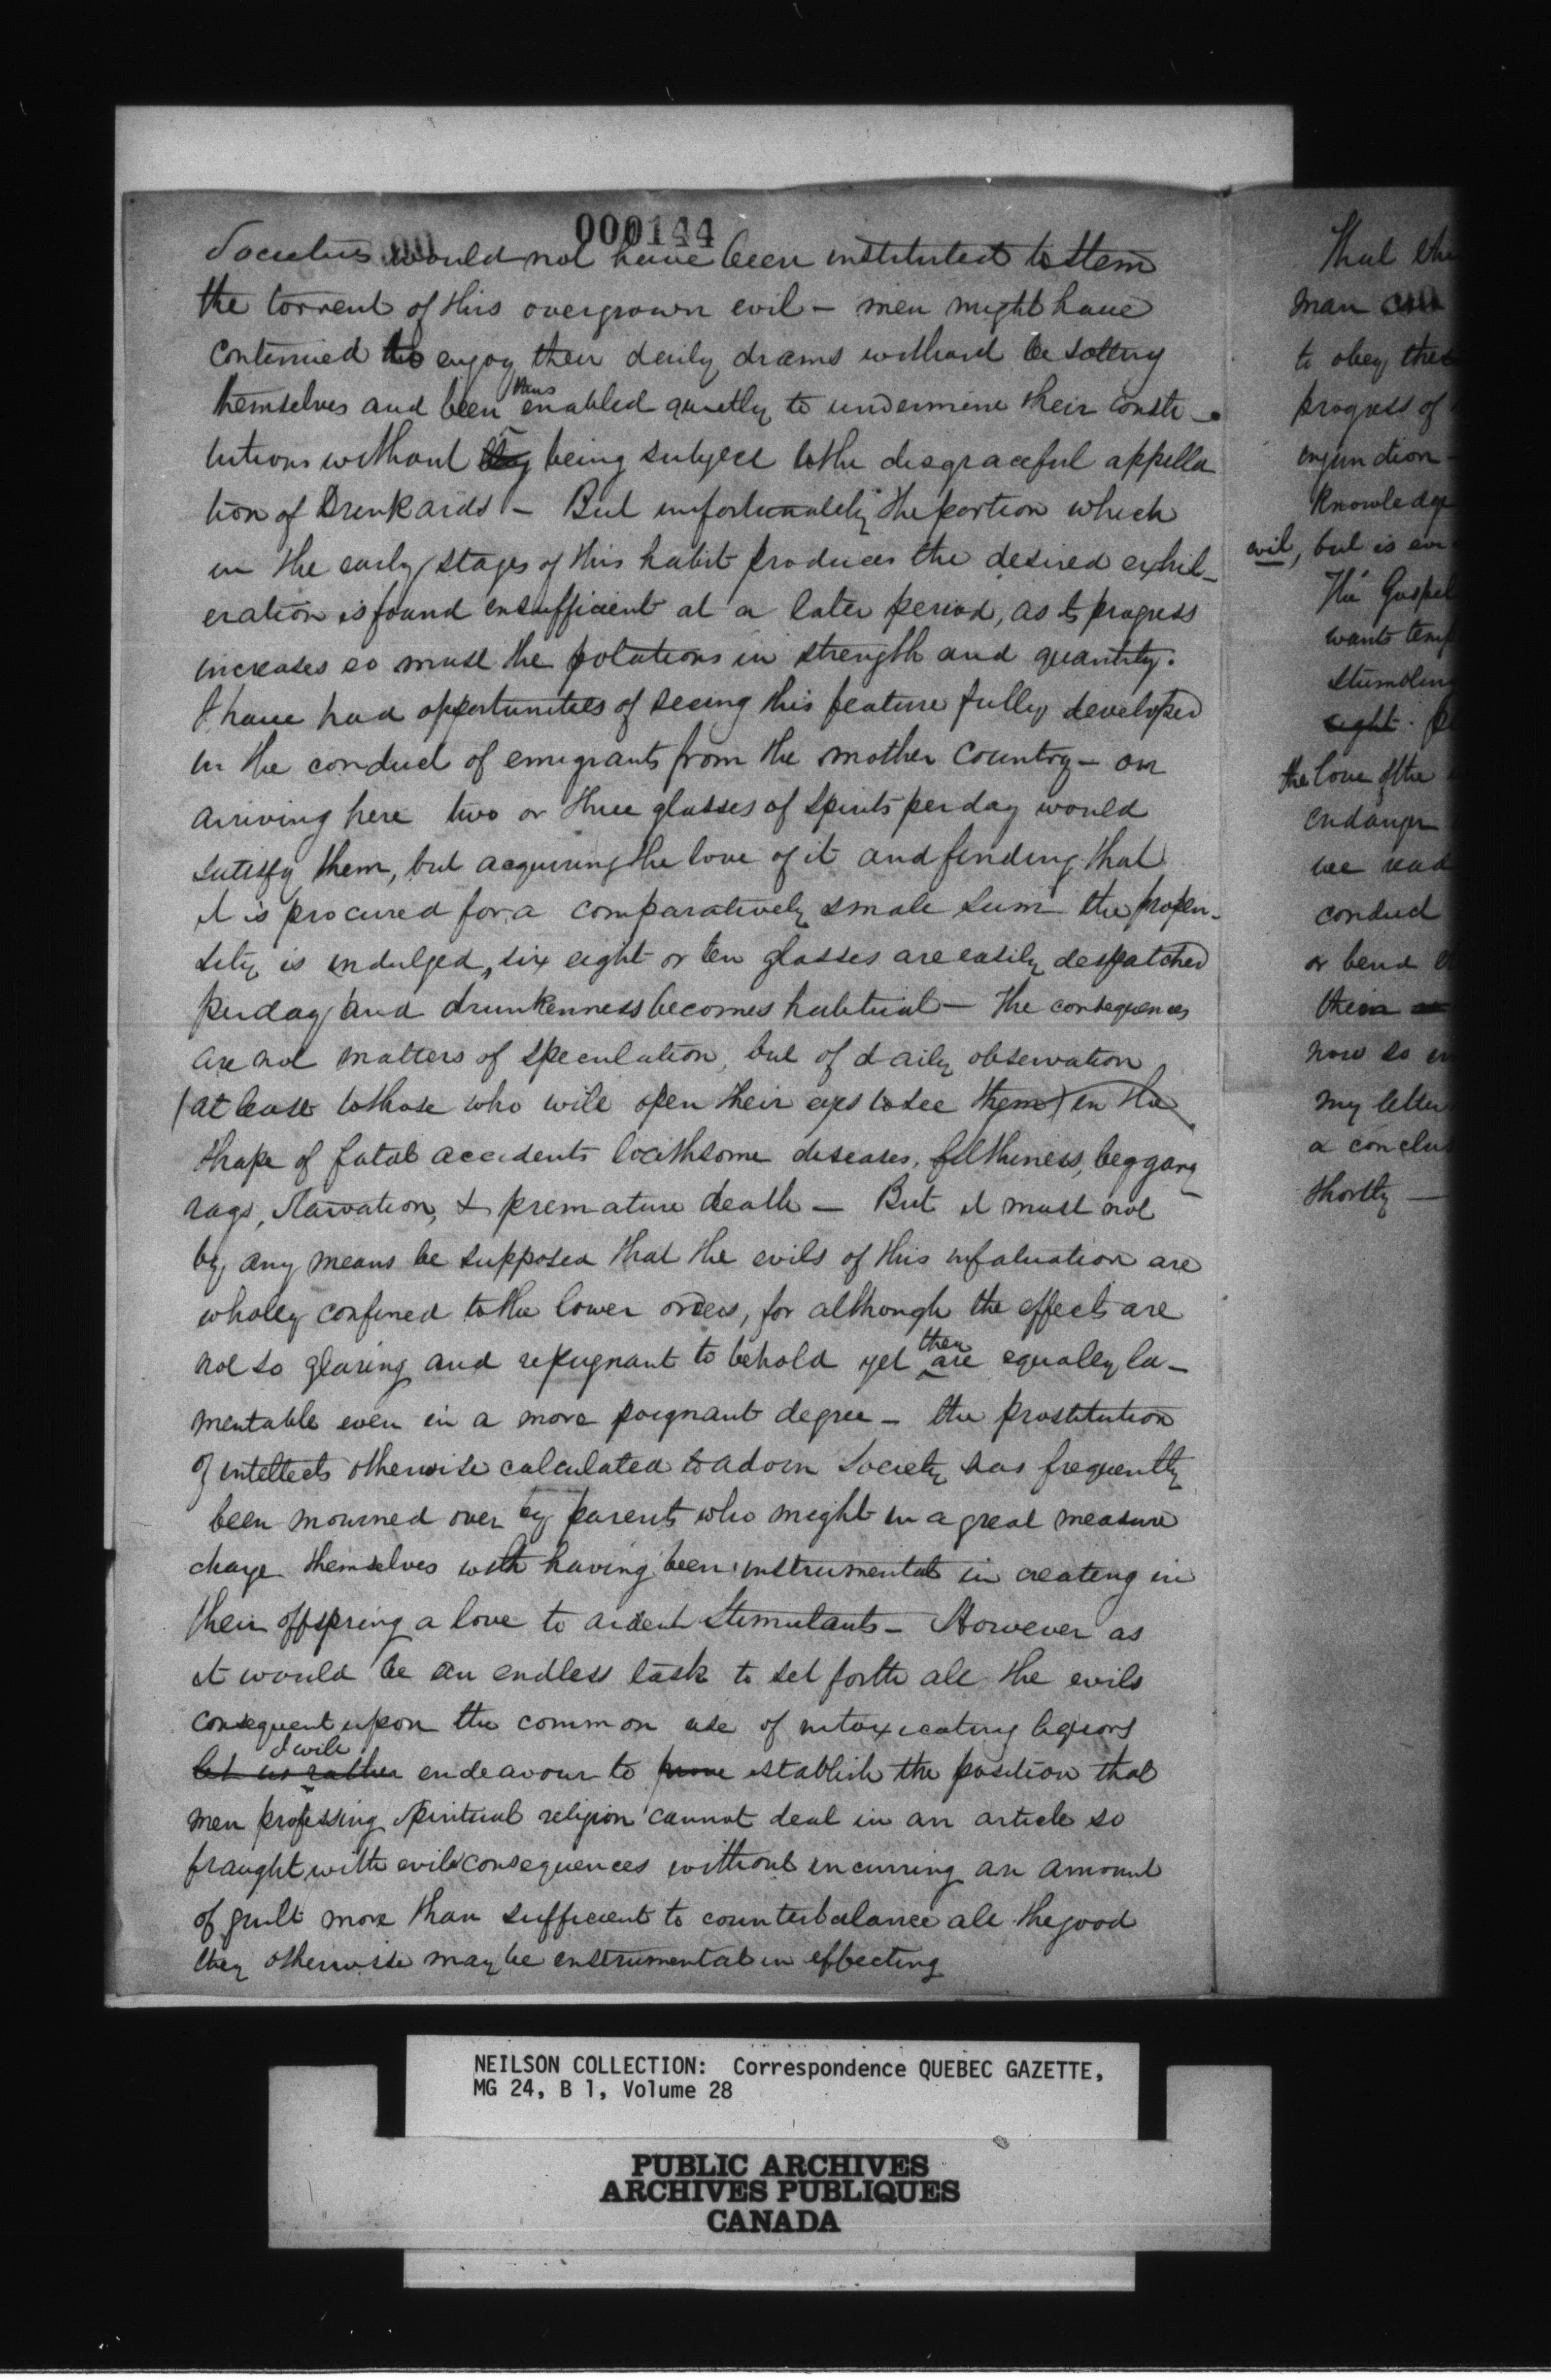 000144
Societies would not have been instituted to stem
the torrent of this overgrown evil – men might have
continued to enjoy their daily drams without besotting
themselves and been thus enabled quietly to undermine their consti-
tutions without being subject to the disgraceful appella
tion of Drunkards – But unfortunately the portion which
in the early stages of this habit produces the desired exhil-
eration is found insufficient at a later period, as its progress
increases so must the potations in strength and quantity.
I have had opportunities of seeing this feature fully developed
in the conduct of emigrants from the mother country – on
arriving here two or three glasses of spirits per day would
satisfy them, but acquiring the love of it and finding that
it is procured for a comparatively small sum the propen-
sity is indulged, six eight or ten glasses are easily despatched
per day and drunkenness becomes habitual – The consequences
are not matters of speculation, but of daily observation
(at least to those who will open their eyes to see them) in the
shape of fatal accidents loathsome diseases, filthiness, beggary
rags, starvation, & premature death – But it must not
by any means be supposed that the evils of this infatuation are
wholly confined to the lower orders, for although the effects are
not so glaring and repugnant to behold yet they are equally la-
mentable even in a more poignant degree – the prostitution
of intellects otherwise calculated to adorn Society has frequently
been mourned over by parents who might in a great measure
charge themselves with having been instrumental in creating in
their offspring a love to ardent Stimulants – However as
it would be an endless task to set forth all the evils
consequent upon the common use of intoxicating liquors
let us rather I will endeavour to prove establish the position that
men professing spiritual religion cannot deal in an article so
fraught with evil consequences without incurring an amount
of guilt more than sufficient to counterbalance all the good
they otherwise may be instrumental in effecting
That the
man
to obey
progress of
injunction
knowledge
evil, but is
The Gospel
wants
sight.
the love of the
endanger
we read
conduct
or bend
their
now so
my letter
a conclus
shortly –
NEILSON COLLECTION: Correspondence QUEBEC GAZETTE,
MG 24, B 1, Volume 28
PUBLIC ARCHIVES
ARCHIVES PUBLIQUES
CANADA